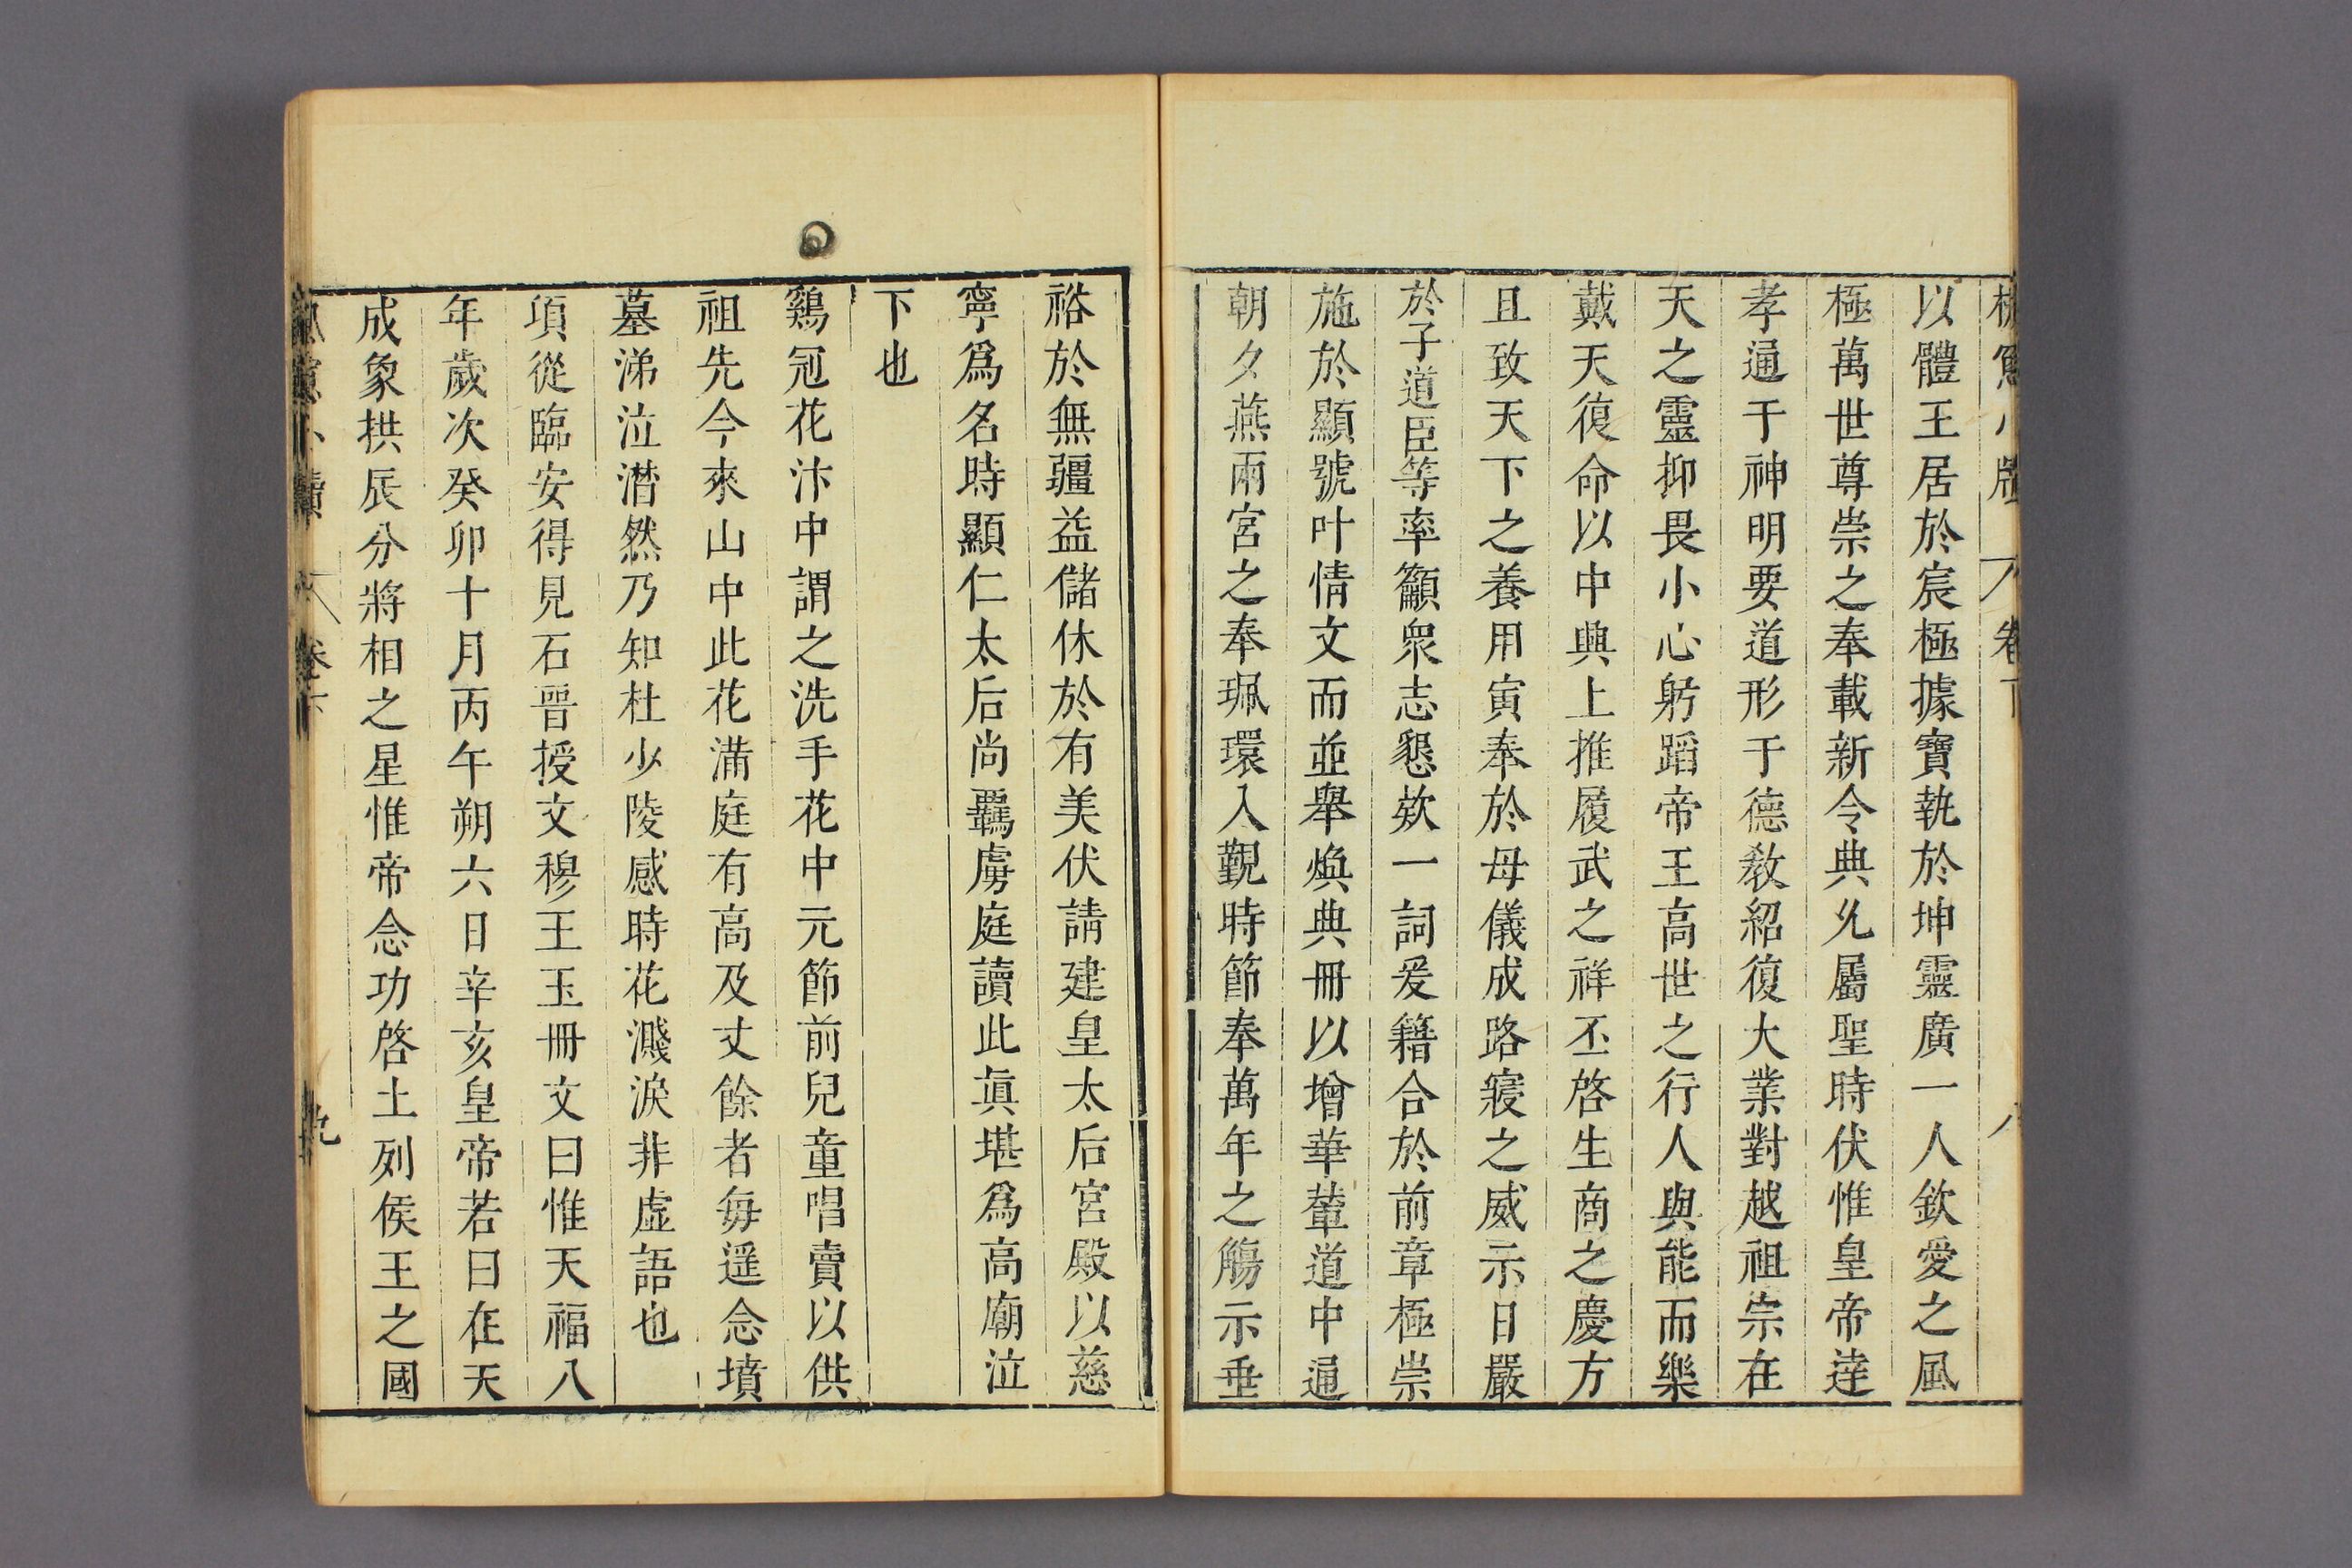 以體王居於宸極據寶執於坤靈廣一人欽愛之風
極萬世尊崇之奉載新令典允屬聖時伏惟皇帝達
孝通于神明要道形于德教紹復大業對越祖宗在
天之靈抑畏小心躬蹈帝王高世之行人與能而樂
戴天復命以中興上推履武之祥丕啓生商之慶方
且致天下之養用寅奉於母儀成路寢之威示日嚴
於子道臣等率籲眾志懇欵一詞爰籍合於前章極崇
施於顯號叶情文而並舉煥典冊以增華輦道中通
朝夕燕兩宮之奉珮環入覲時節奉萬年之觴示垂
裕於無疆益儲休於有美伏請建皇太后宮殿以慈
寧爲名時顯仁太后尚羈虜庭讀此眞堪爲高廟泣
下也
鷄冠花汴中謂之洗手花中元節前兒童唱賣以供
祖先今來山中此花滿庭有高及丈餘者每遥念墳
墓涕泣潸然乃知杜少陵感時花濺淚非虛語也
項從臨安得見石晉授文穆王玉冊文曰惟天福八
年歲次癸卯十月丙午朔六日辛亥皇帝若曰在天
成象拱辰分將相之星惟帝念功啓土列侯王之國
卷下
九